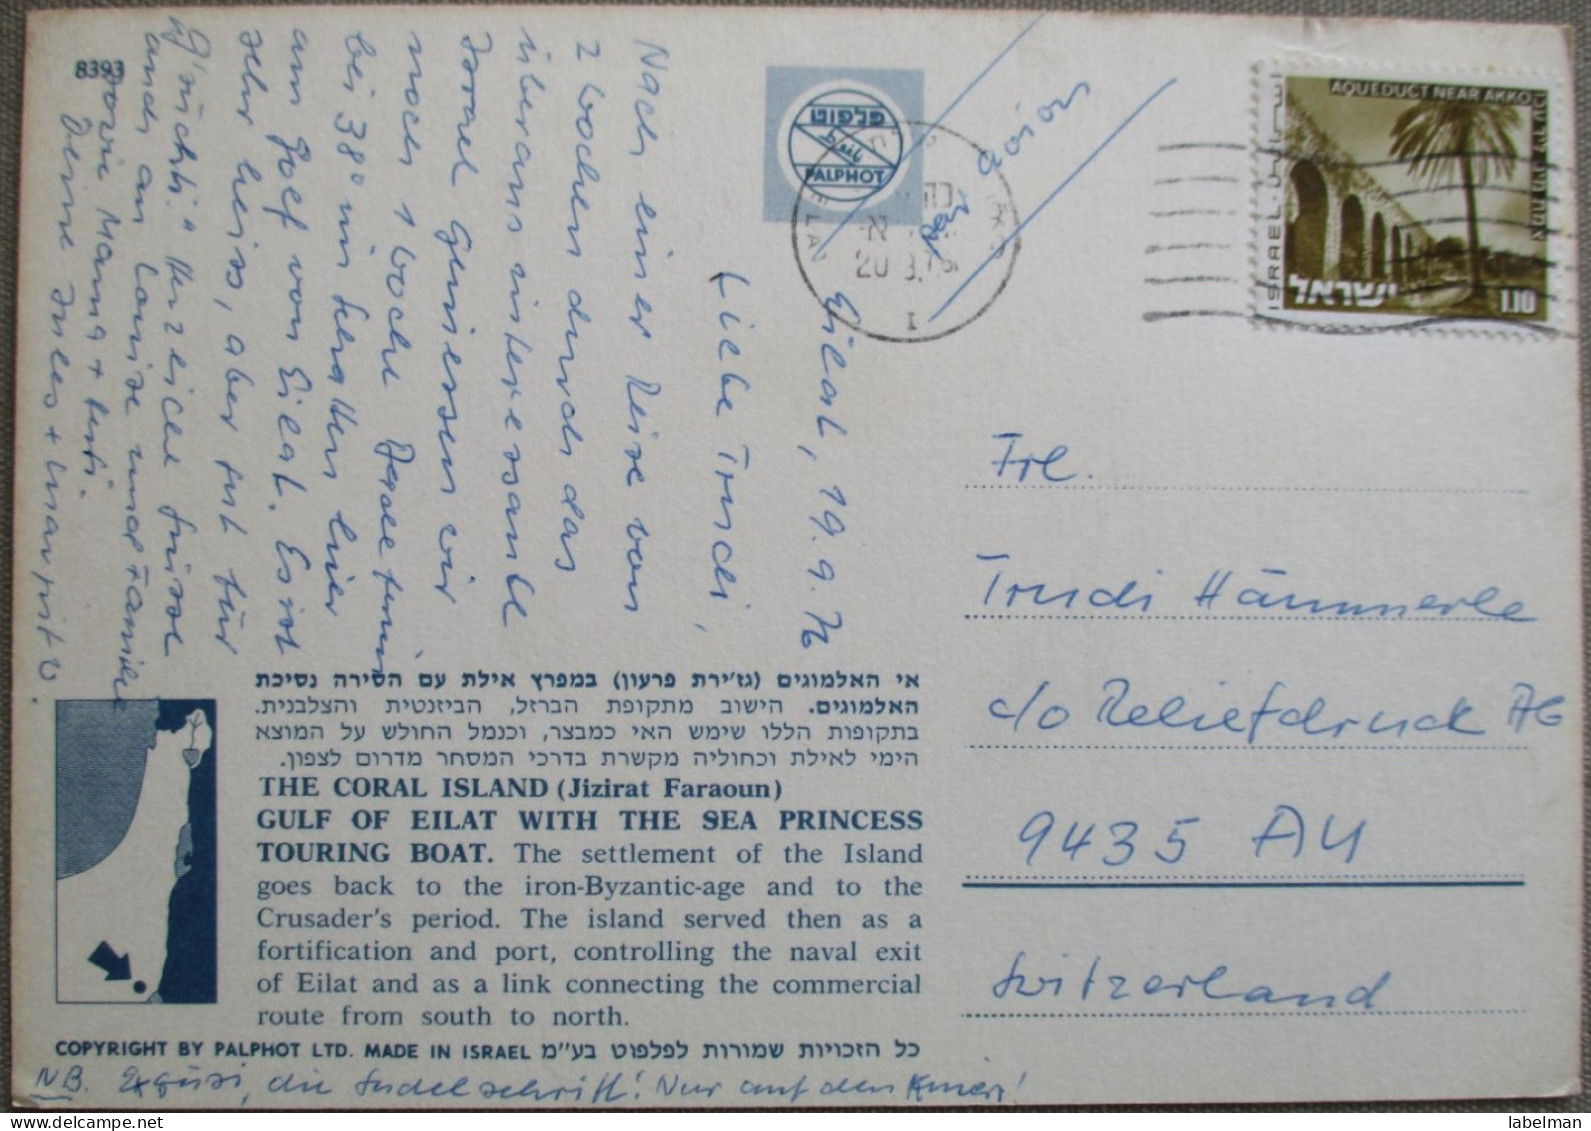 8393
פלפוט
PALPHOT
par avion
ELAT
20.9.76
I
AQUEDUCT NEAR AKKO
ISRAEL
ישראל
1.10
Eilat, 19.9.76
Liebe Trudi,
Nach einer Reise von
2 Wochen durch das
überaus interessante
Israel geniessen wir
noch 1 Woche Badeferien
bei 38° im Schatten hier
am Golf von Eilat. Es ist
sehr heiss, aber gut für
"G'süchti". Herzliche Grüsse
auch an Louise und Familie
sowie Mama +
Deine Jules + Margrit W.
Frl.
Trudi Hämmerle
c/o Reliefdruck AG
9435 AU
Switzerland
אי האלמוגים (גז'ירת פרעון) במפרץ אילת עם הסירה נסיכת
האלמוגים. הישוב מתקופת הברזל, הביזנטית והצלבנית.
בתקופות הללו שימש האי כמבצר, וכנמל החולש על המוצא
הימי לאילת וכחוליה מקשרת בדרכי המסחר מדרום לצפון.
THE CORAL ISLAND (Jizirat Faraoun)
GULF OF EILAT WITH THE SEA PRINCESS
TOURING BOAT. The settlement of the Island
goes back to the iron-Byzantic-age and to the
Crusader's period. The island served then as a
fortification and port, controlling the naval exit
of Eilat and as a link connecting the commercial
route from south to north.
COPYRIGHT BY PALPHOT LTD. MADE IN ISRAEL כל הזכויות שמורות לפלפוט בע"מ
NB. Exgüsi, die Sudelschrift! Nur auf den Knien!
labelman
www.delcampe.net